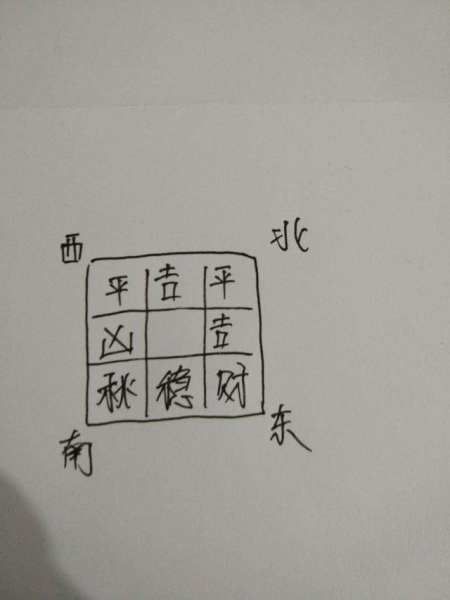 西 北
平 吉 平
凶 吉
稳 财
南 东